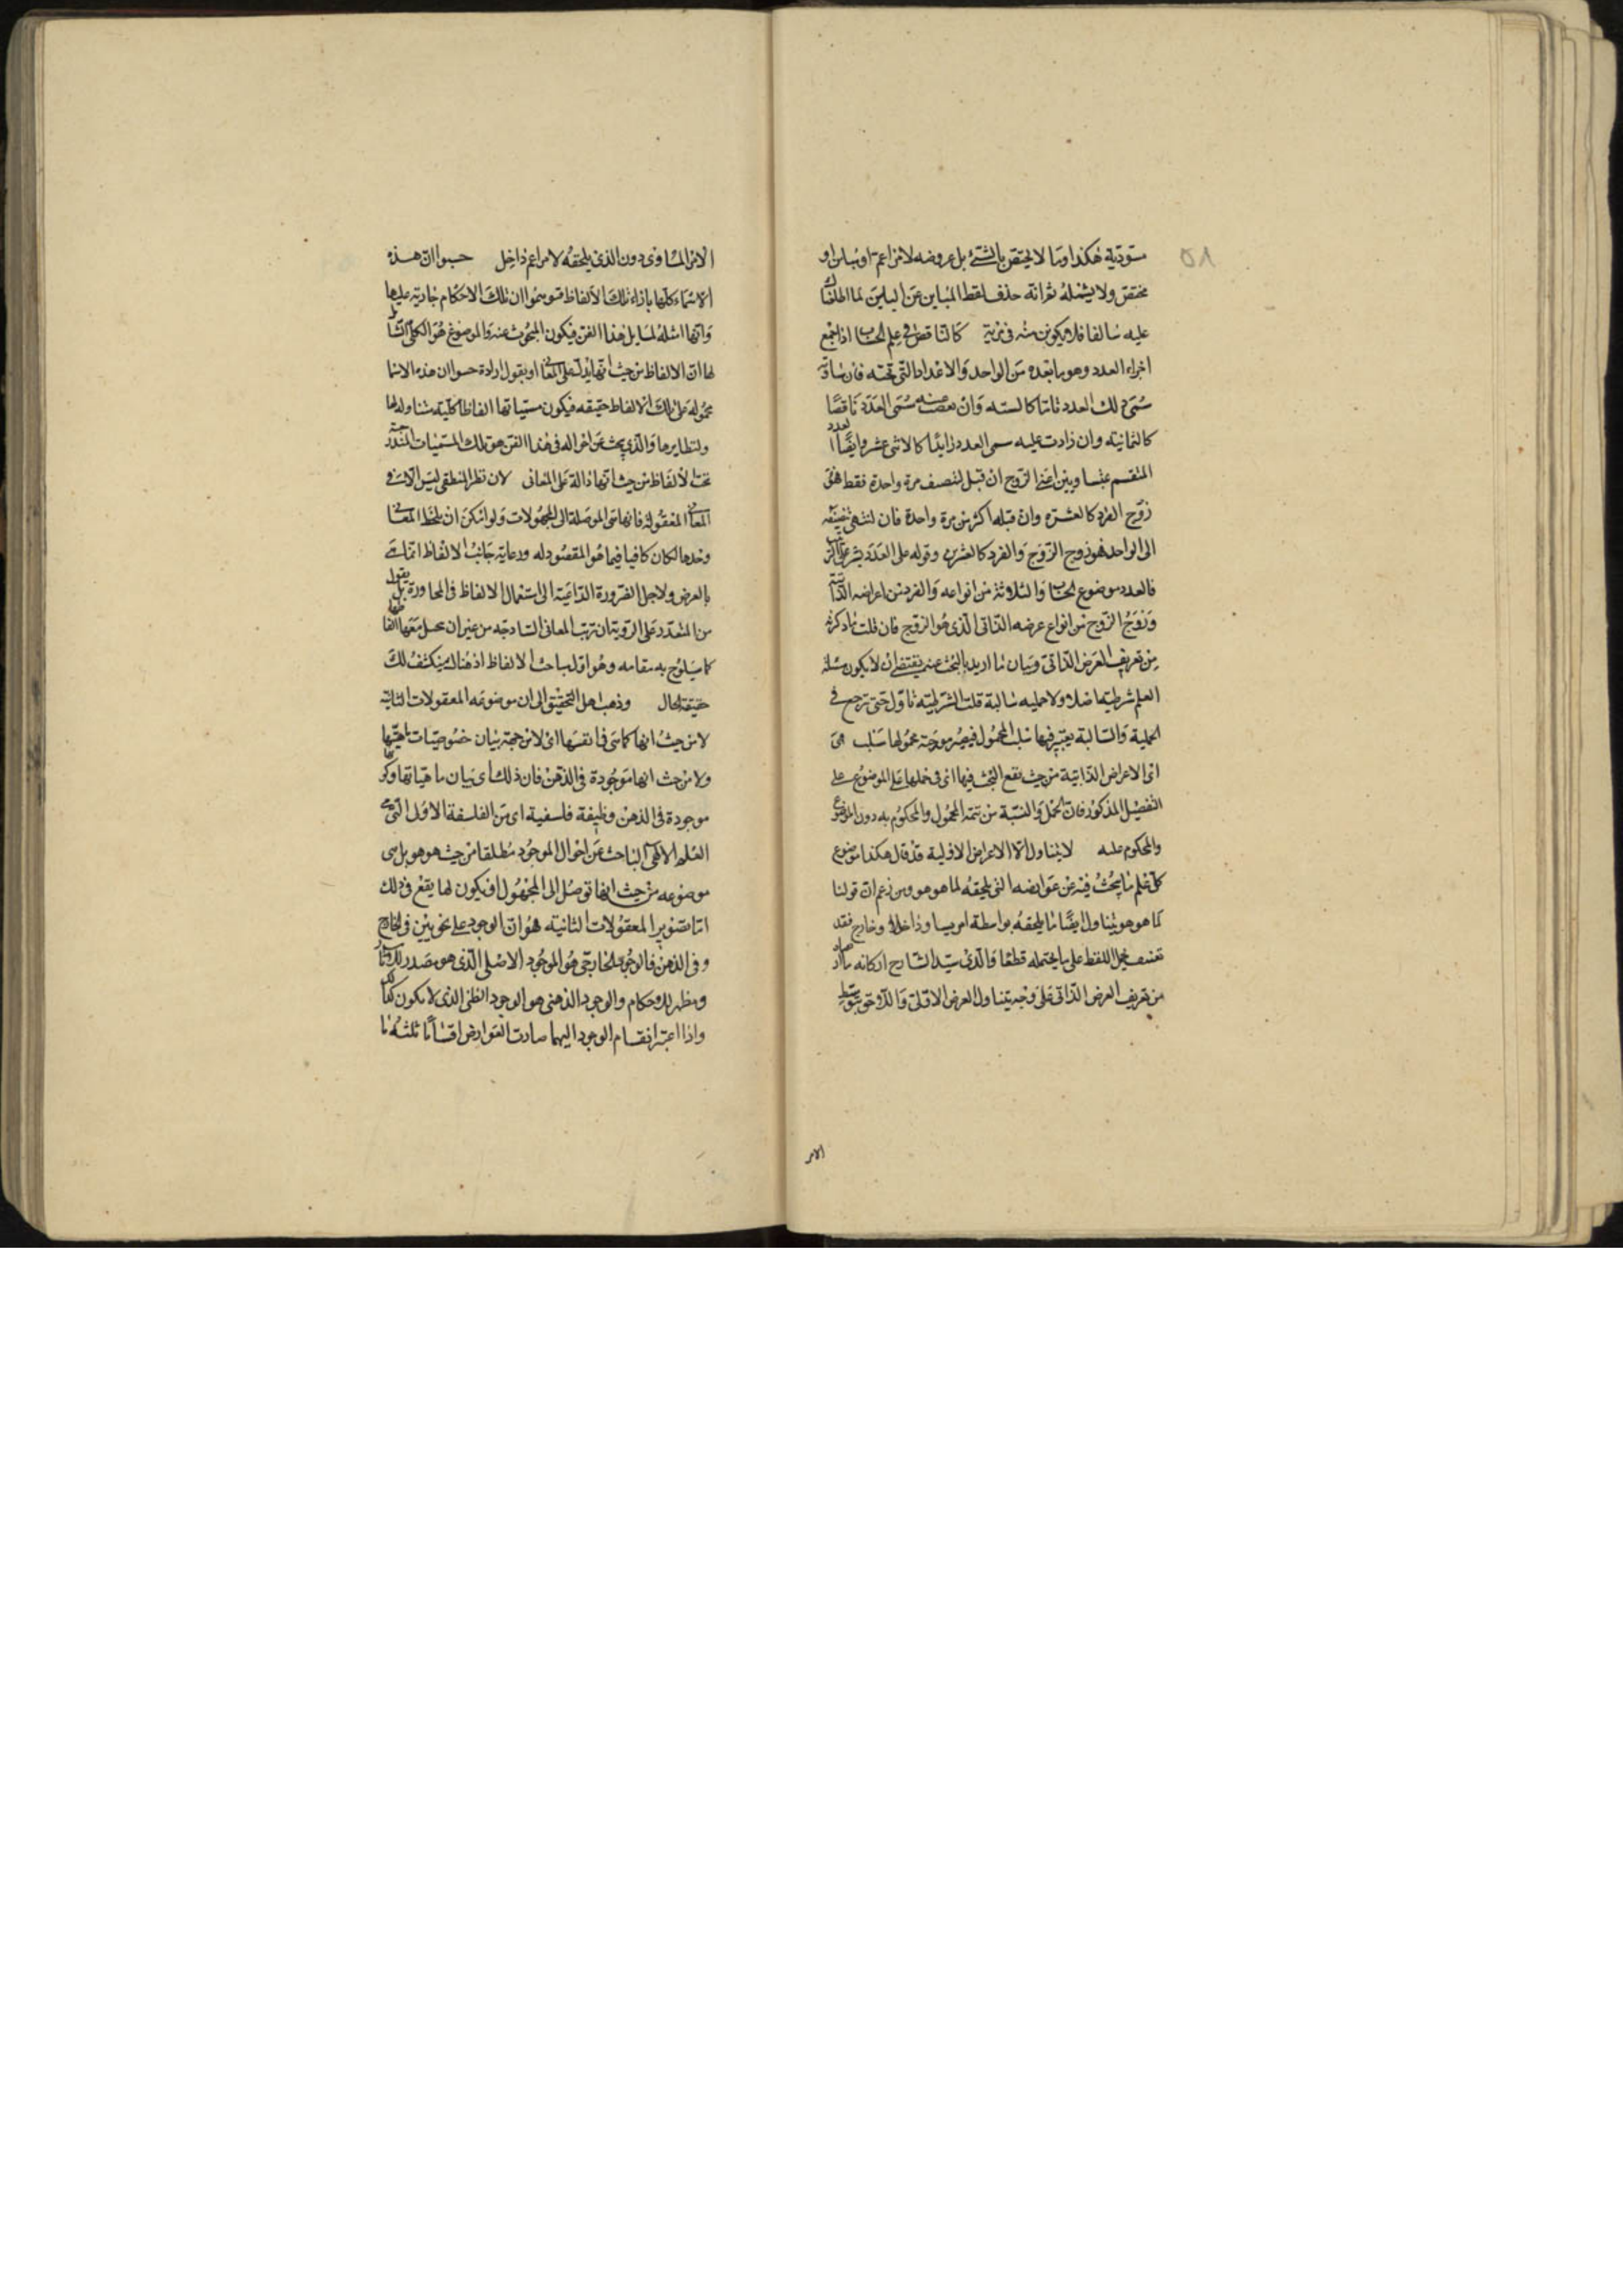 مسودته هكذا وما لا يختص بالشئ بل عروضه لامر اعم او مباين او
مختص ولا يشمله ثم انه حذف لفظ المباين عن البين لما اطلعنا
عليه سالفا فلا يكون منه فى مرية كالناقص فى علم الحساب اذا جمع
اجزاء العدد وهو ما بعده من الواحد والاعداد التى تحته فان ساوته
سمى ذلك العدد تاما كالستة وان نقصت منه سمى العدد ناقصا
كالثمانية وان زادت عليه سمى العدد زايدا كالاثنى عشر وايضا العدد
المنقسم بمتساويين اعنى الزوج ان قبل التنصف مرة واحدة فقط فهو
زوج الفرد كالعشرة وان قبله اكثر من مرة واحدة فان انتهى تنصيفه
الى الواحد فهو زوج الزوج والفرد كالعشرين وقوله على العدد
فالعدد موضوع الحساب والثلاثة من انواعه والفرد من اعراضه الذاتية
وزوج الزوج من انواع عرضه الذاتى الذى هو الزوج فان قلت ما ذكرته
من تعريف العرض الذاتى وبيان ما اريد بالبحث عنه يقتضى ان لا يكون مسئلة
العلم شرطية اصلا ولا حملية سالبة قلت الشرطية تأول حتى ترجع فى
الحملية والسالبة يعتبر فيها سلب المحمول فيصير موجبة محمولها سلب هى
اى الاعراض الذاتية من حيث يقع البحث فيها اى فى حملها على الموضوع على
التفصيل المذكور فان الحمل والنسبة من تتمة المحمول والمحكوم به دون الموضوع
والمحكوم عليه لا يتناول الا الاعراض الاولية قد قال هكذا موضوع
كل علم ما يبحث فيه عن عوارضه التى يلحقه لما هو هو ومن زعم ان قولنا
لما هو هو يتناول ايضا ما يلحقه بواسطة امر يساويه داخلا وخارج فقد
تعسف بحمل اللفظ على ما لا يحتمله قطعا والذى سيد الشارح اركانه ما افاد
من تعريف العرض الذاتى على وجه يتناول العرض الاولى والذى هو بتوسط
الامر
الامر المساوى دون الذى يلحقه لامر اعم داخل حسبوا ان هذه
الاسماء كلها بازاء تلك الالفاظ فتوهموا ان تلك الاحكام جارية عليها
وانها امثلة لمسايل هذا الفن فيكون المبحوث عنه والموضوع هو الكلى الشامل
لها ان الالفاظ من حيث انها يدل على المعانى او يقول ارادة حسبوا ان هذه الاسما
محمولة على تلك الالفاظ حقيقة فيكون مسمياتها الفاظا كلية متناولة لها
ولنظايرها والذى يبحث عن احواله فى هذا الفن هو تلك المسميات المندرجة
تحت الالفاظ من حيث انها دالة على المعانى لان نظر المنطقى ليس الا فى
المعانى المعقولة فانها هى الموصلة الى المجهولات ولو امكن ان يلاحظ المعانى
وحدها لكان كافيا فيما هو المقصود له ورعاية جانب الالفاظ انما هى
بالعرض ولاجل الضرورة الداعية الى استعمال الالفاظ فى المحاورة بل يقول
من المتعذر على الروية ان ترتب المعانى الساذجة من غير ان يتخيل معها الفاظها
كما سيلوح به مقامه وهو اول مباحث الالفاظ اذ هنالك ينكشف لك
حقيقة الحال وذهب اهل التحقيق الى ان موضوعه المعقولات الثانية
لا من حيث انها ما هى فى انفسها اى لا من جهة بيان خصوصيات ماهيتها
ولا من حيث انها موجودة فى الذهن فان ذلك اى بيان ماهياتها وكونها
موجودة فى الذهن وظيفة فلسفية اى من الفلسفة الاولى التى هى
العلم الالهى الباحث عن احوال الموجود مطلقا من حيث هو هو بل هى
موضوعه من حيث انها توصل الى المجهول او يكون لها نفع فى ذلك
اما تصوير المعقولات الثانية هو ان الوجود على نحويين فى الخارج
وفى الذهن فالوجود الخارجى هو الوجود الاصلى الذى هو مصدر للاثار
ومظهر للاحكام والوجود الذهنى هو الوجود الظلى الذى لا يكون كذلك
واذا اعتبر انقسام الوجود اليهما صارت العوارض اقساما ثلثه ما